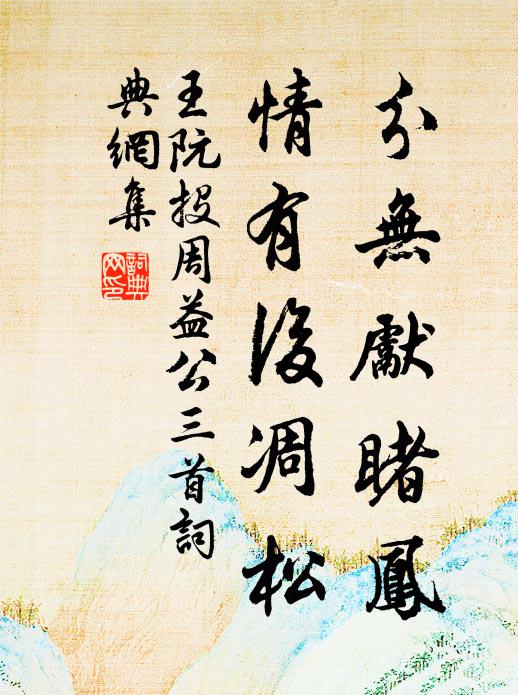 分無獻睹鳳
情有後凋松
王阮投周益公三首詞
典網集
詞典
网印